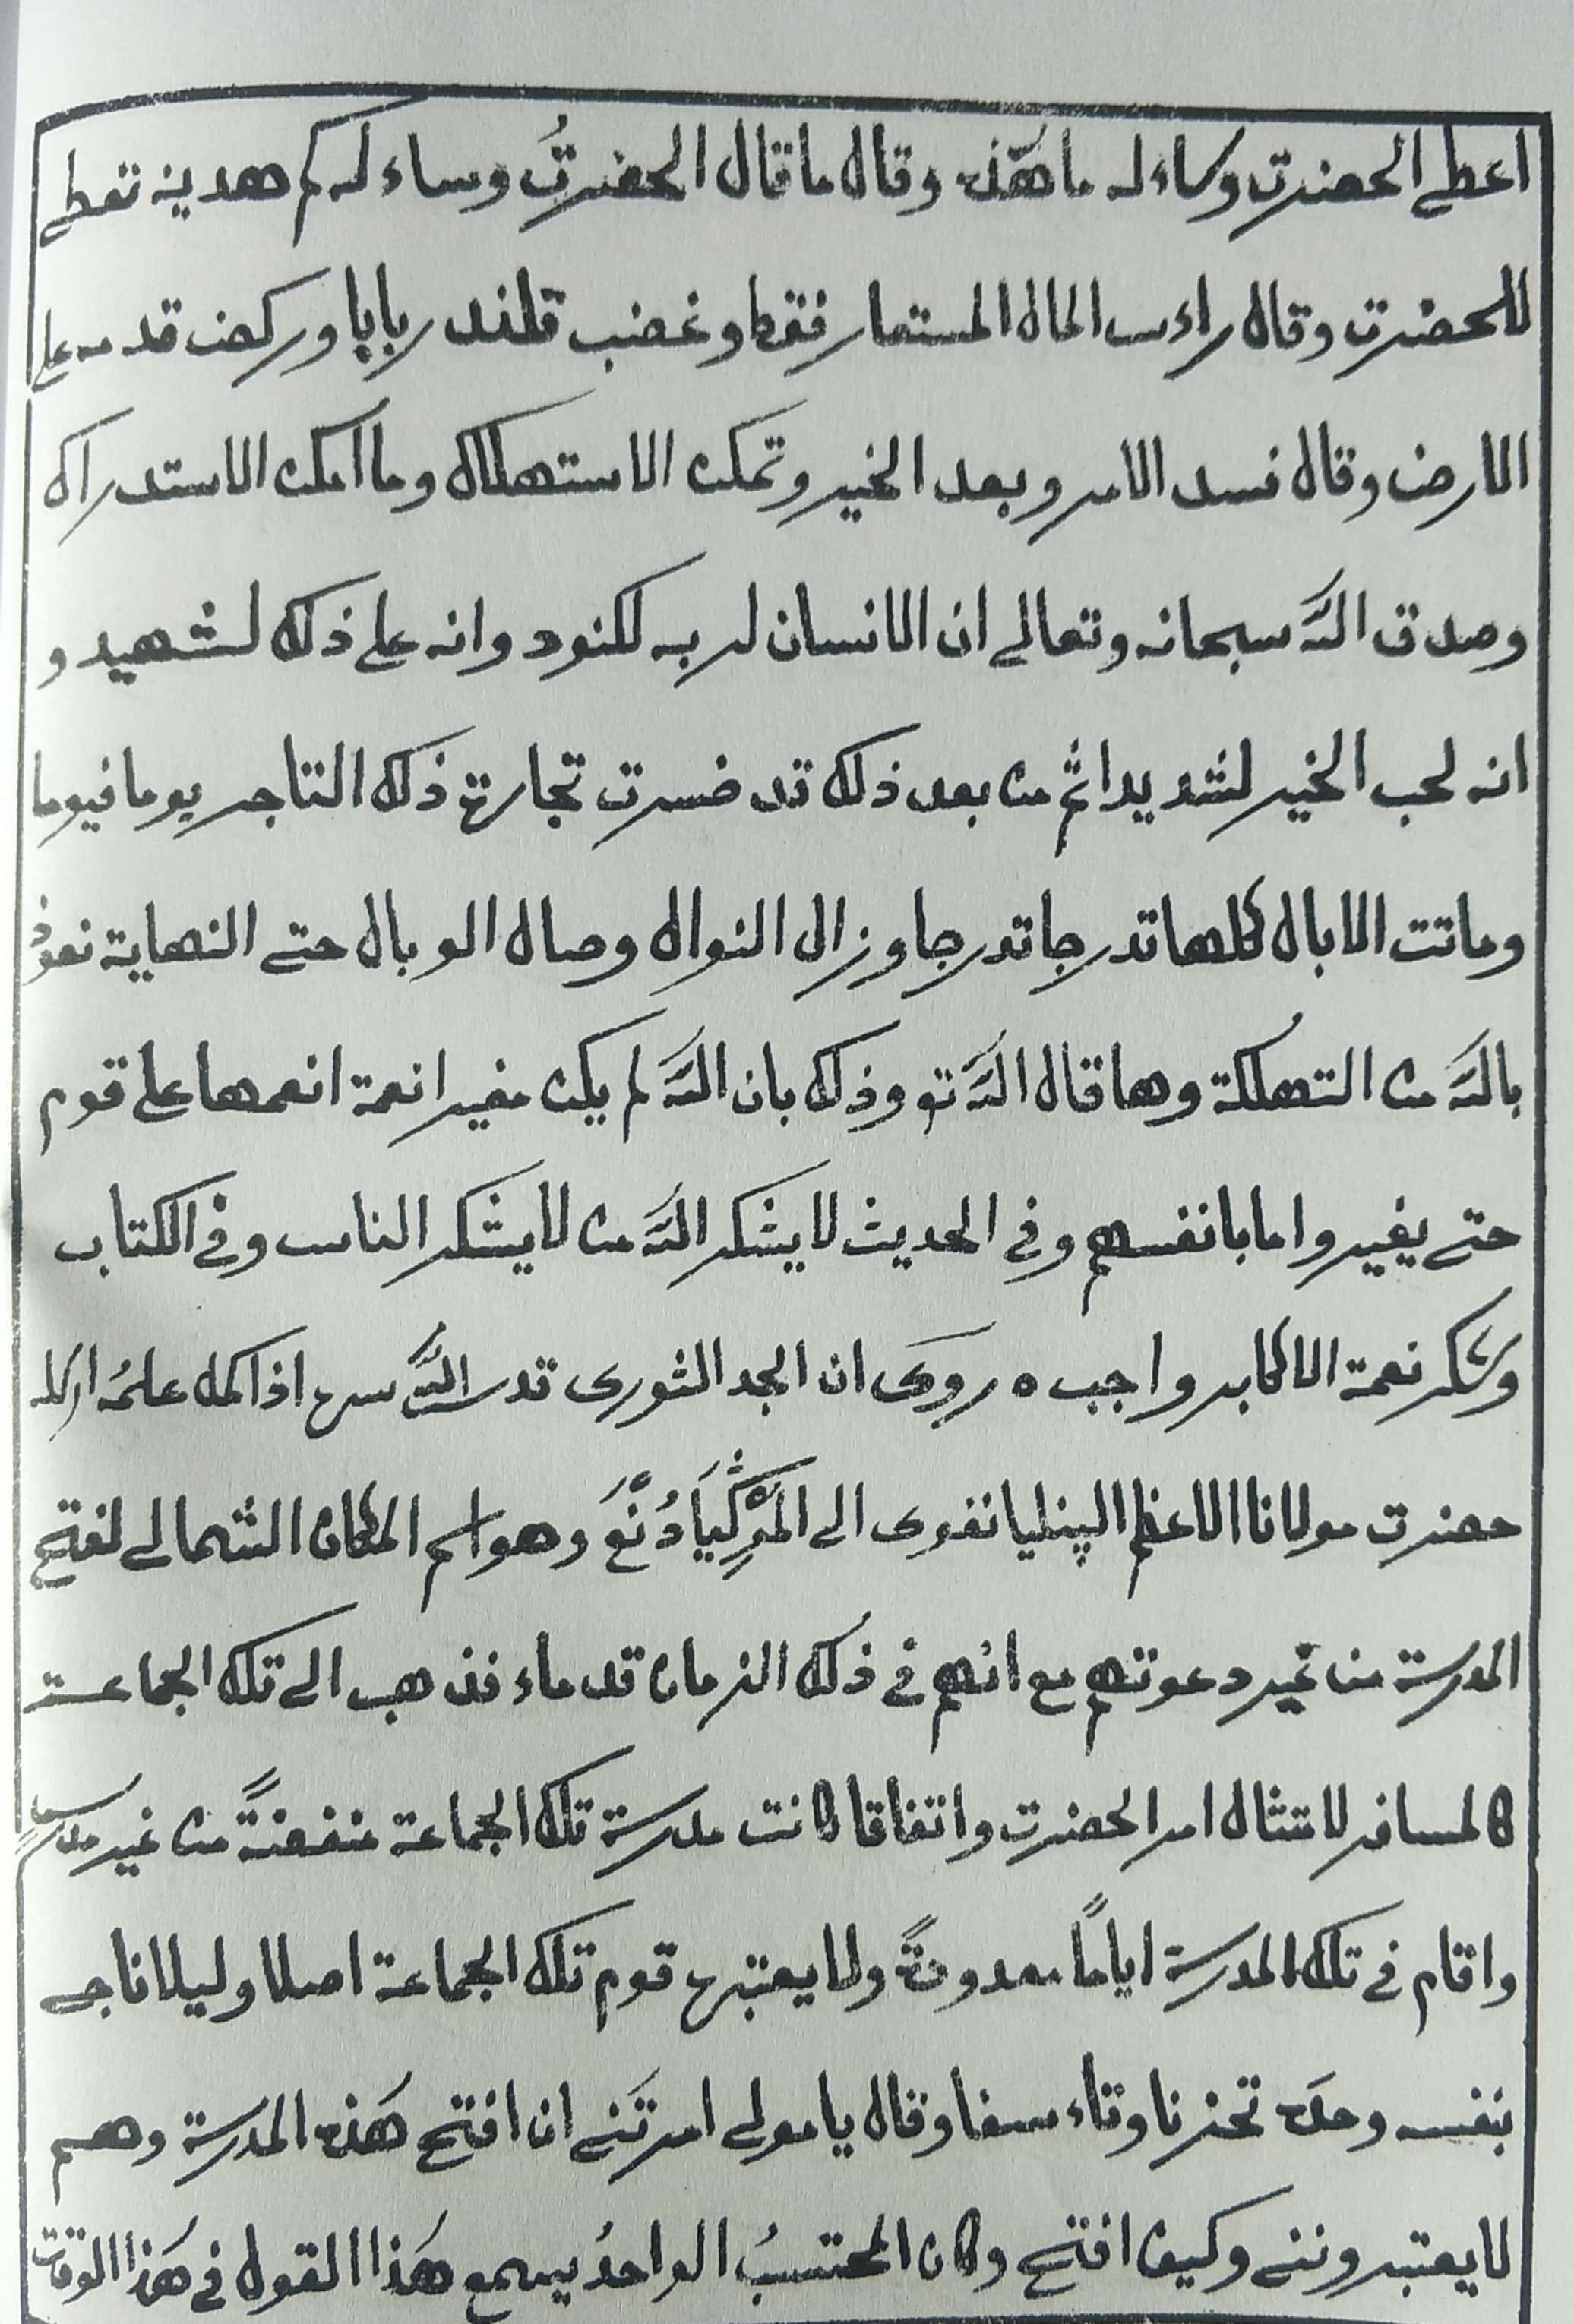 اعطى الحضرت وساءله ما هذه وقال ما قال الحضرتُ وساءله كم هدية تعطى
للحضرت وقال راءس المال المستعار فقط وغضب قلندر بابا وركض قدمه على
الارض وقال فسد الامر وبعد الخير وتمكن الاستهلاك وما امكن الاستدراك
وصدق الله سبحانه وتعالى ان الانسان لربه لكنود وانه على ذلك لشهيد و
انه لحب الخير لشديد اثم من بعد ذلك قد خسرت تجارة ذلك التاجر يوما فيوما
وماتت الابال كلها تدرجا تدرجا وزال النوال وصال الوبال حتى النهاية نعوذ
بالله من التهلكة وها قال الله تع وذلك بان الله لم يكن مغيرا نعمة انعمها على قوم
حتى يغيروا ما بانفسهم وفى الحديث لا يشكر الله من لا يشكر الناس وفى الكتاب
وشكر نعمة الاكابر واجب ه روى ان الجد الثورى قدس الله سره اذا كمل علمُه ارسله
حضرت مولانا الاعظم الپنليانفوى الى وهو اسم المكان الشمالى لفتح
المدرسة من غير دعوتهم مع انهم فى ذلك الزمان قدماء فذهب الى تلك الجماعة
كالمسافر لامتثال امر الحضرت واتفاقا كانت مدرسة تلك الجماعة منفضةً من غير مدرسٍ
واقام فى تلك المدرسة اياماً معدودةً ولا يعتبره قوم تلك الجماعة اصلا وليلا ناجى
بنفسه وحده تحزنا وتاءسفا وقال يا مولى امرتنى ان افتح هذه المدرسة وهم
لا يعتبروننى وكيف افتح وكان المحتسبُ الواحدُ يسمع هذا القول فى هذا الوقت